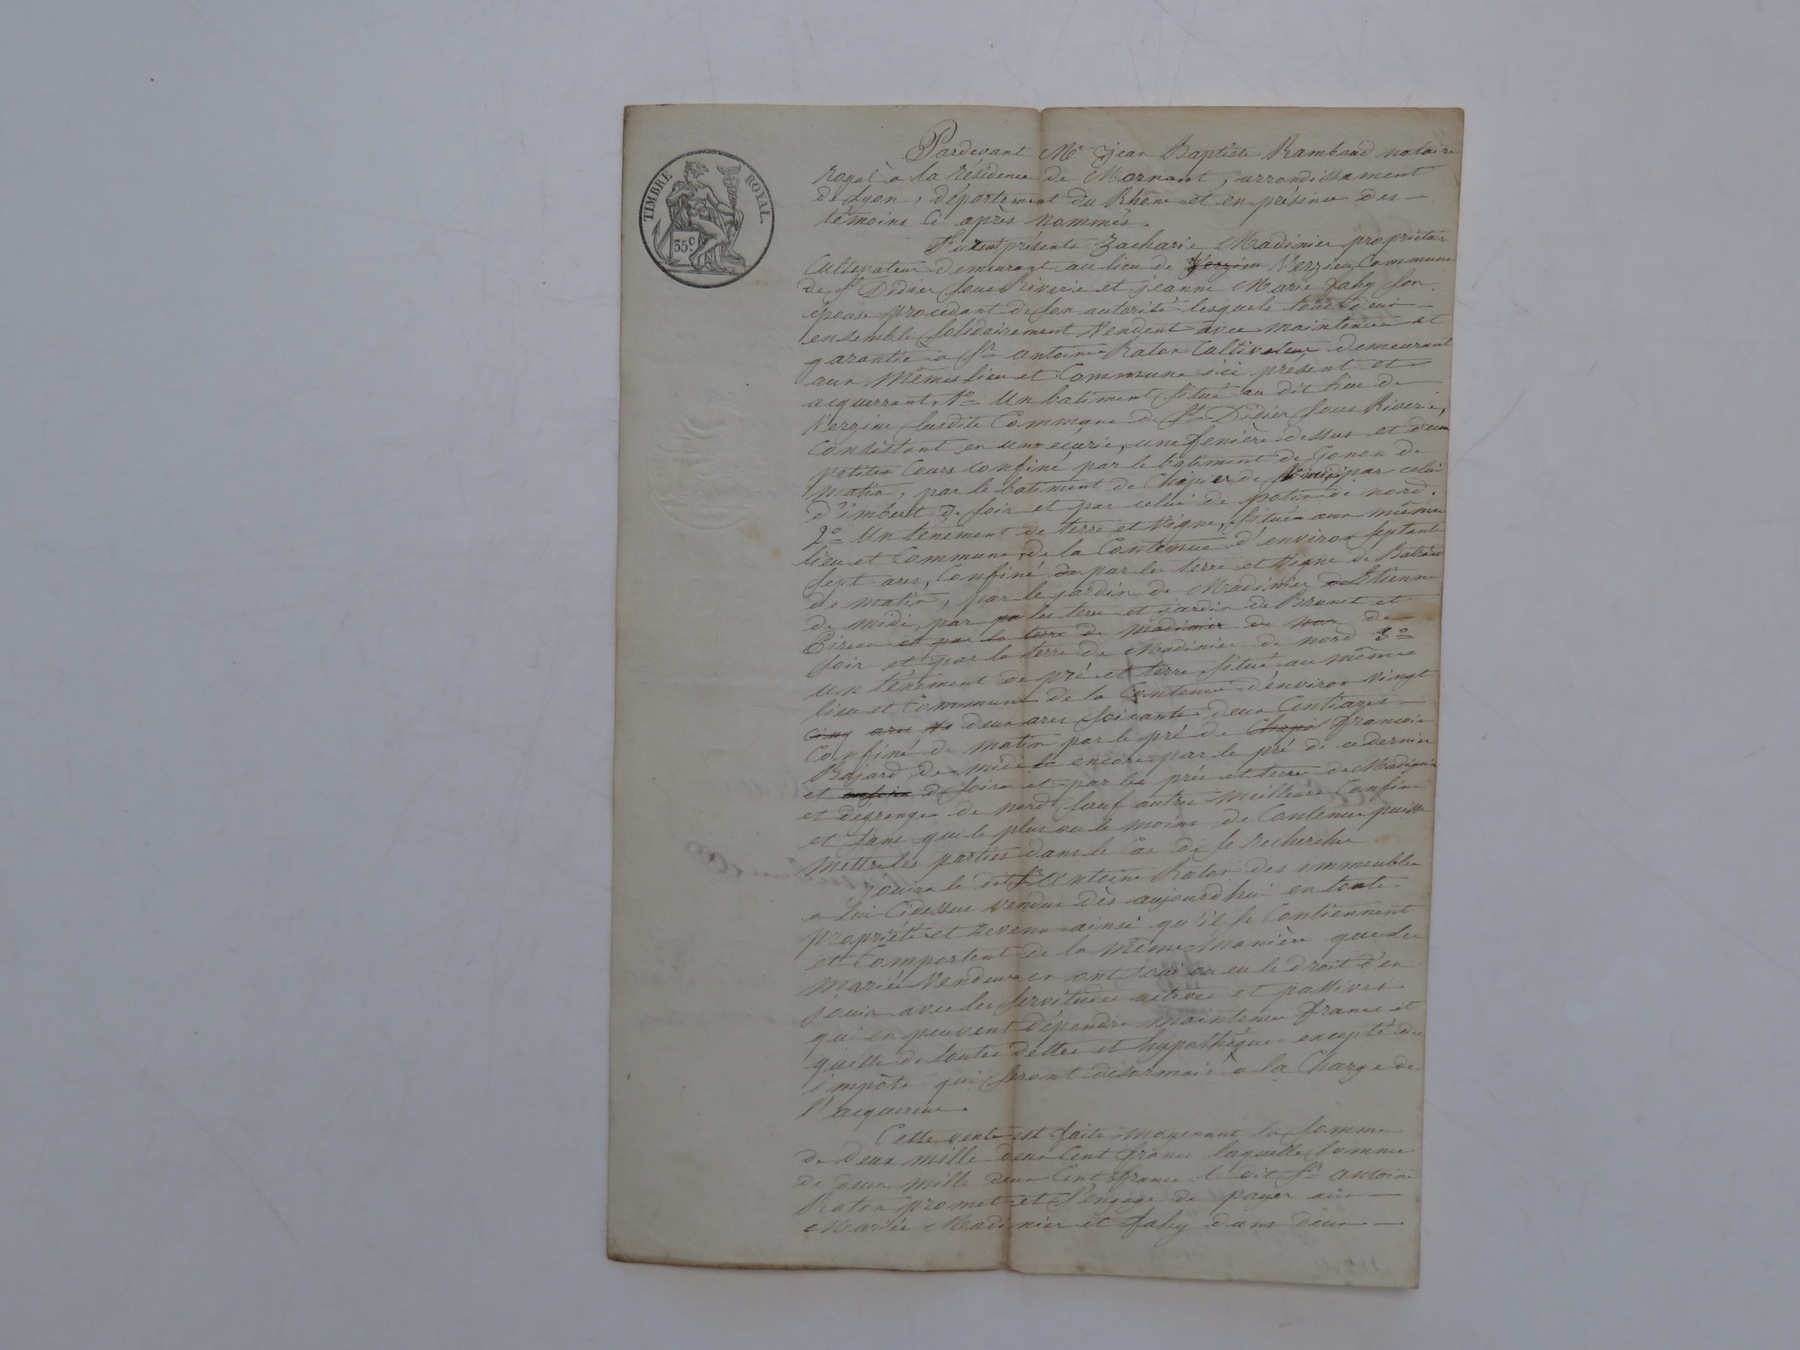 TIMBRE ROYAL
35 c.
Pardevant Me Jean Baptiste Rambaud notaire
royal à la résidence de Mornant, arrondissement
de Lyon, département du Rhône et en présence des
témoins ci après nommés.
Furent présents Zacharie Madinier propriétaire
Cultivateur demeurant au lieu de Verzieu Verzieu Commune
de St Didier sous Riverie et jeanne Marie fahy son
épouse procédant de son autorité lesquels tous deux
ensemble solidairement Vendent avec maintenue et
garantie à Sr antoine Raton Cultivateur demeurant
aux Mêmes lieu et Commune ici présent et
acquerrant, 1o Un batiment situé au dit lieu de
Verzieu susdite Commune de St Didier sous Riverie,
Consistant en une écurie, une fenière dessus et d'une
petite Cours confiné par le batiment de Gonon de
matin, par le batiment de Chapier de midi par celui
d'imbert de soir et par celui de potin de nord.
2o Un tenement de terre et Vigne, situé aux mêmes
lieu et Commune, de la Contenue d'environ septante
sept ares, Confiné par les terre et Vigne de
de matin, par le jardin de Madinier Etienne
de midi, par les terre et jardin de Brunet et
et par la terre de Madinier de de
soir et par la terre de Madinier de nord 3o
un tènement de pré et terre situé au mêmes
lieu et Commune de la Contenue d'environ Vingt
Cinq ares deux ares soixante deux Centiares
Confiné de matin par le pré de françois
Bajard, de midi encore par le pré de ce dernier
et de soir et par les prés et terre de Madinier
et degrange de nord sauf autre Meilleurs Confins
et sans que le plus ou le moins de Contenue puisse
Mettre les parties dans le Cas de se rechercher
Jouira le dit Sr Antoine Raton des immeubles
a lui Cidessus Vendus dès aujourd'hui en toute
propriété et revenu ainsi qu'il se Contiennent
et Comportent de la Même Manière que les
mariés Vendeurs en ont joui ou eu le droit d'en
jouir avec les servitudes actives et passives
qui en peuvent dépendre Maintenu francs et
quitte de toutes dettes et hypothèques excepté des
impôts qui seront désormais à la Charge de
l'acquereur.
Cette vente est faite Moyenant la somme
de deux mille deux Cent francs laquelle somme
de deux mille deux Cent francs le dit Sr antoine
Raton promet et s'engage de payer aux
Mariés Madinier et fahy dans deux